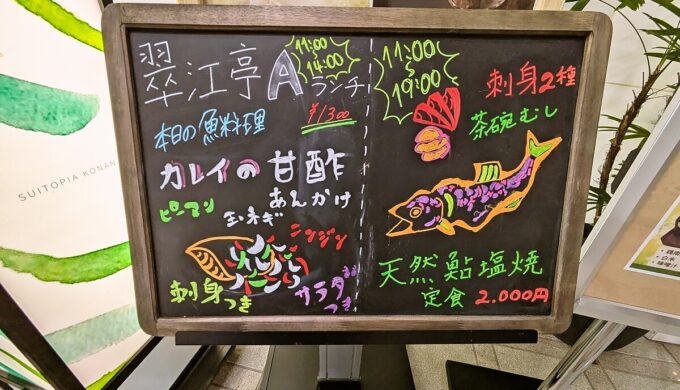 翠江亭Aランチ
11:00
~
14:00
¥1300
本日の魚料理
カレイの甘酢
あんかけ
ピーマン
玉ネギ
ニンジン
刺身
つき
サラダ
つき
11:00
~
19:00
刺身2種
茶碗むし
天然鮎塩焼
定食 2.000円
SUITOPIA KONAN